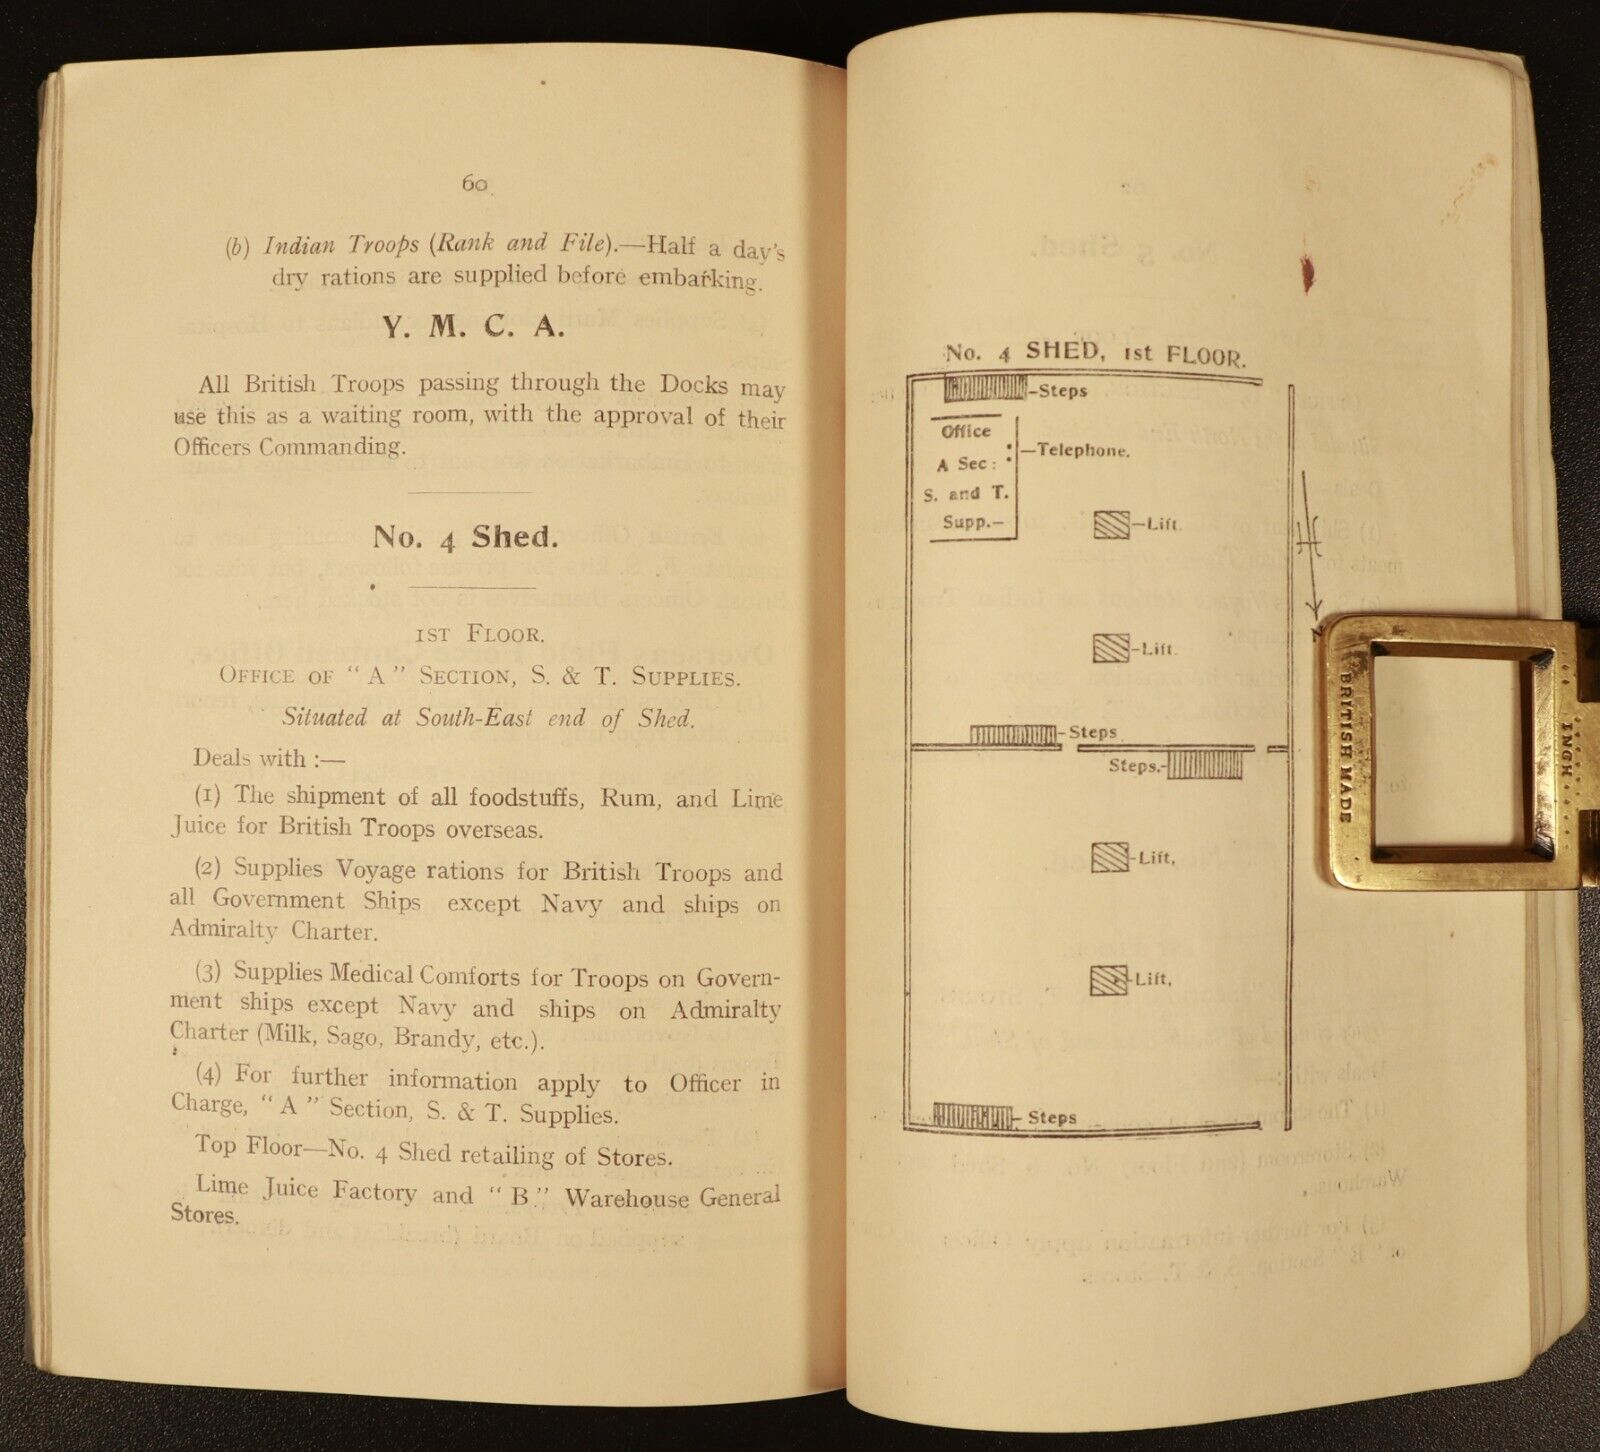 60
(b) Indian Troops (Rank and File).—Half a day's
dry rations are supplied before embarking.
Y. M. C. A.
All British Troops passing through the Docks may
use this as a waiting room, with the approval of their
Officers Commanding.
No. 4 Shed.
1ST FLOOR.
OFFICE OF "A" SECTION, S. & T. SUPPLIES.
Situated at South-East end of Shed.
Deals with :—
(1) The shipment of all foodstuffs, Rum, and Lime
Juice for British Troops overseas.
(2) Supplies Voyage rations for British Troops and
all Government Ships except Navy and ships on
Admiralty Charter.
(3) Supplies Medical Comforts for Troops on Govern-
ment ships except Navy and ships on Admiralty
Charter (Milk, Sago, Brandy, etc.).
(4) For further information apply to Officer in
Charge, "A" Section, S. & T. Supplies.
Top Floor—No. 4 Shed retailing of Stores.
Lime Juice Factory and "B" Warehouse General
Stores.
No. 4 SHED, 1st FLOOR.
Steps
Office
A Sec:
S. and T.
Supp.—
Telephone.
Lift.
Lift.
Steps
Steps.
Lift,
Lift,
Steps
N
BRITISH MADE
INCH